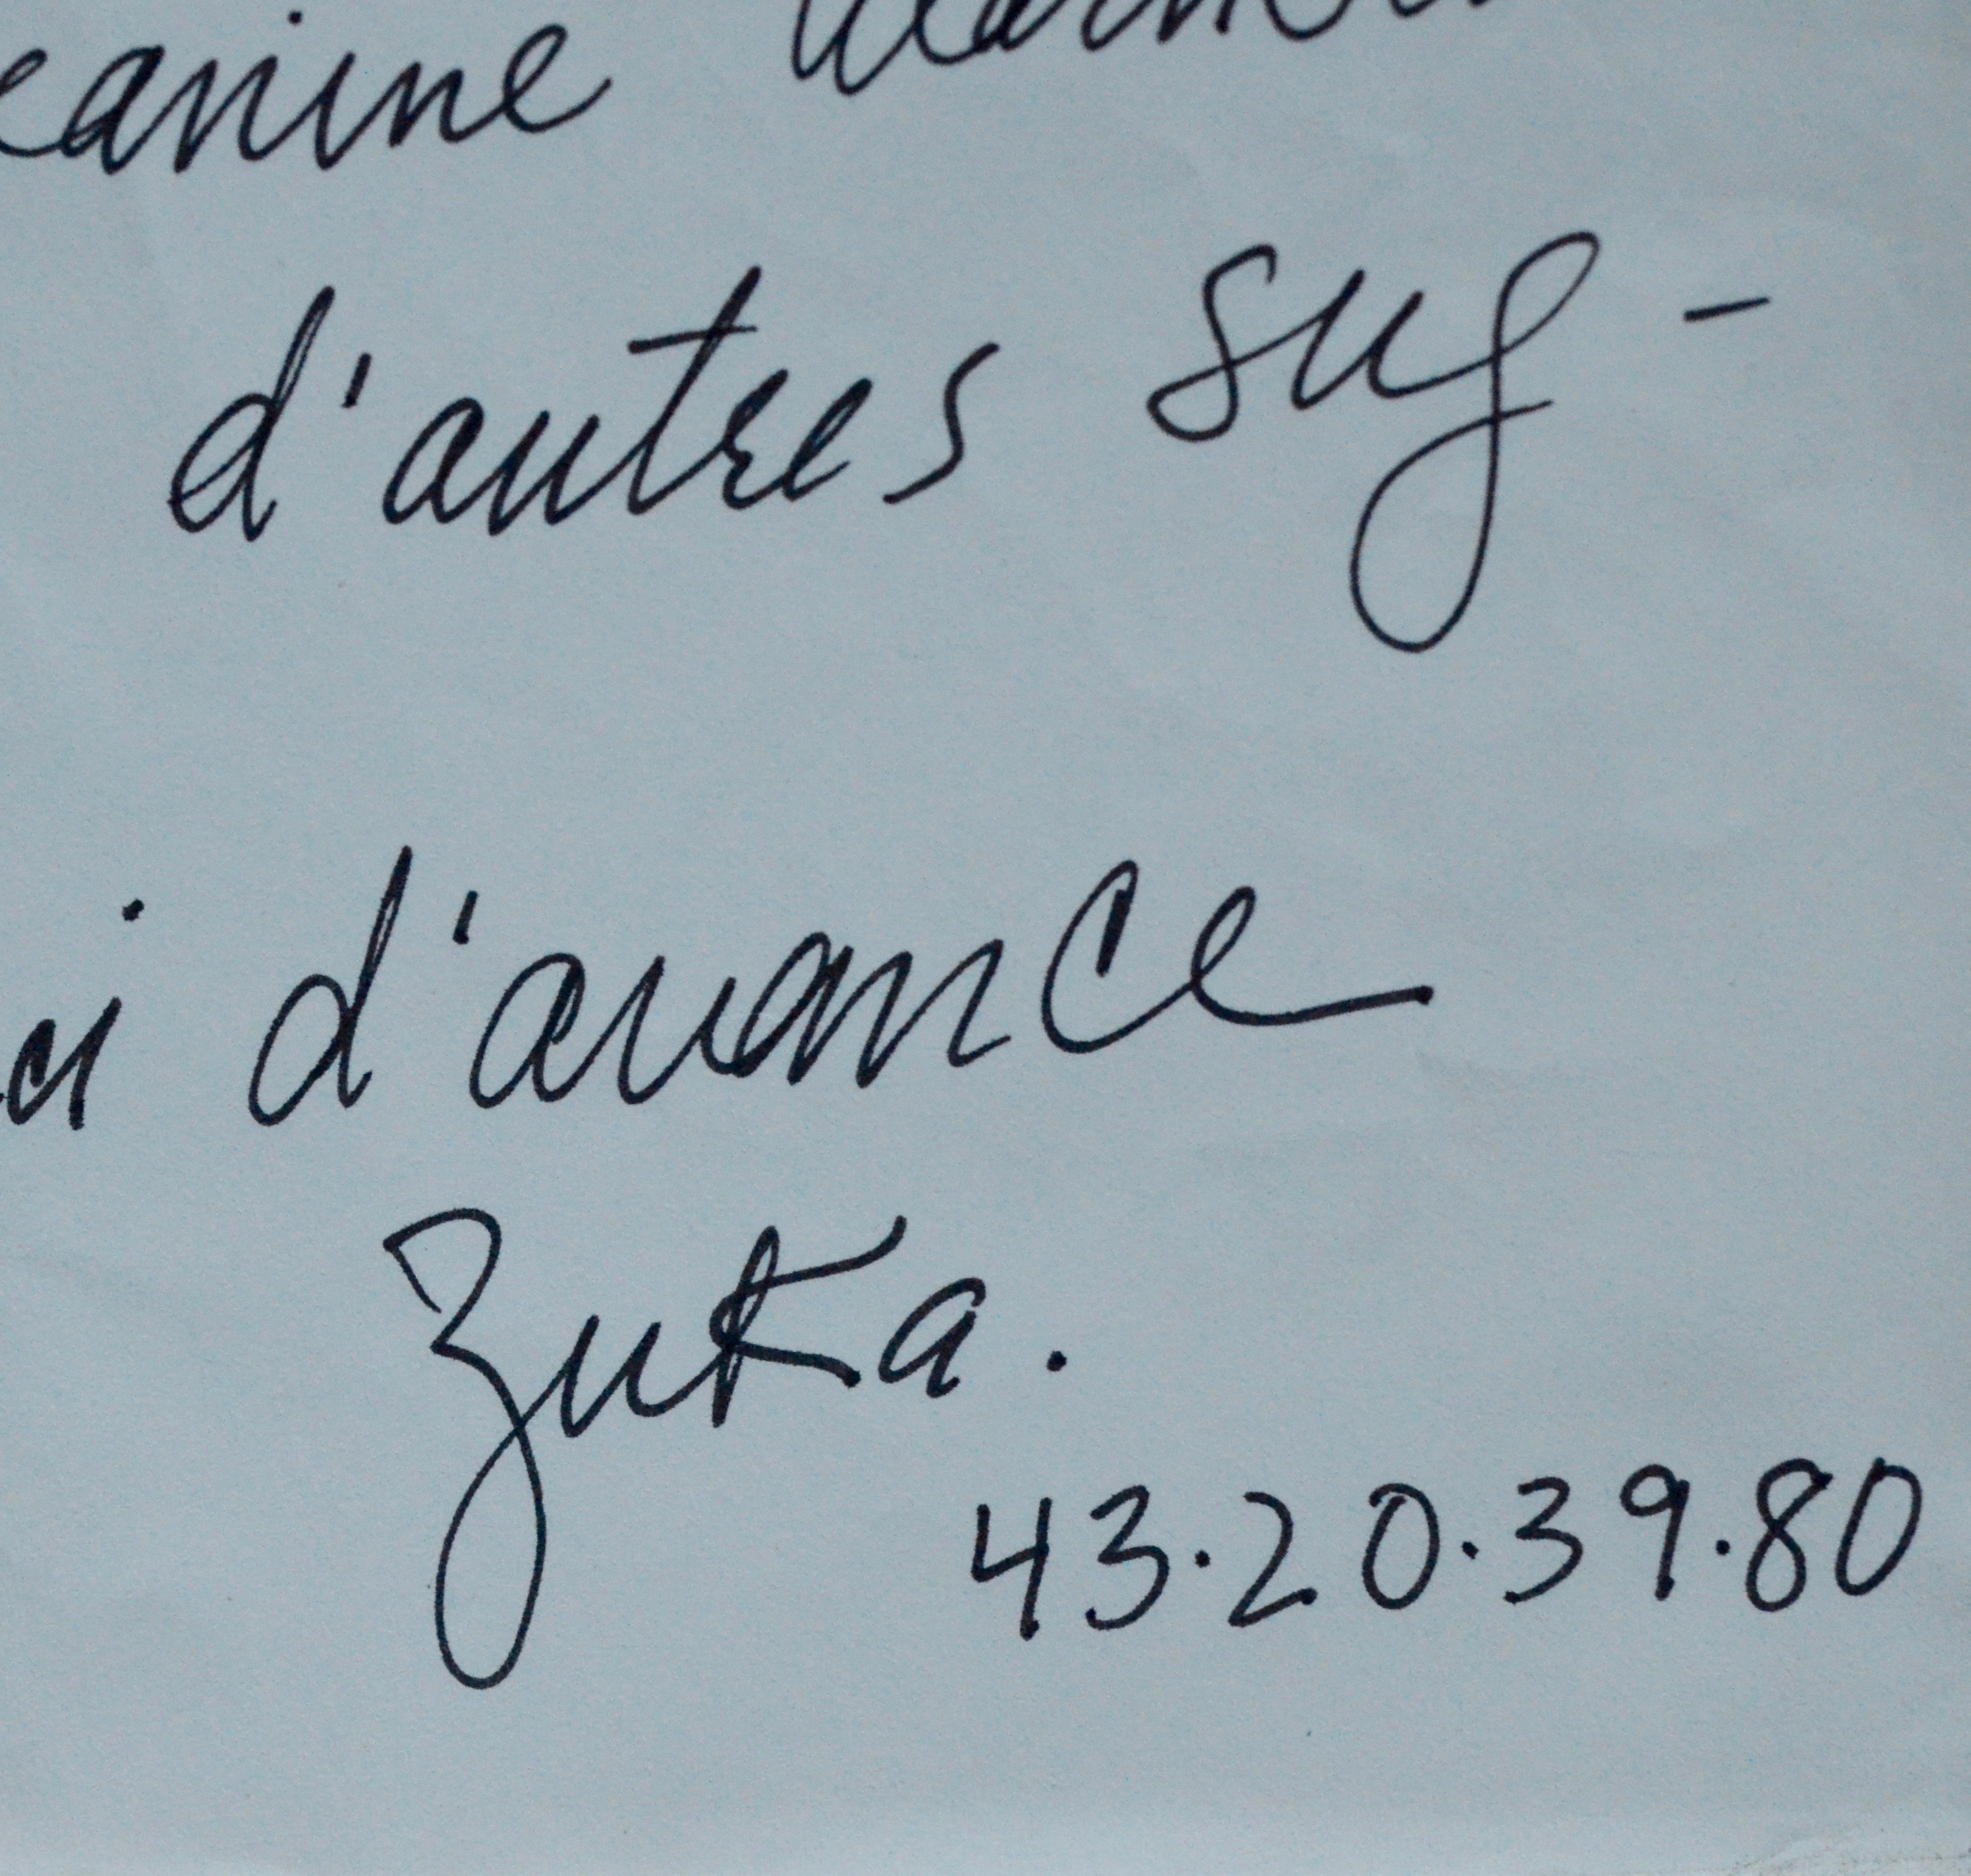 eanine
d'autres sug-
ci d'avance
Zuka.
43.20.39.80